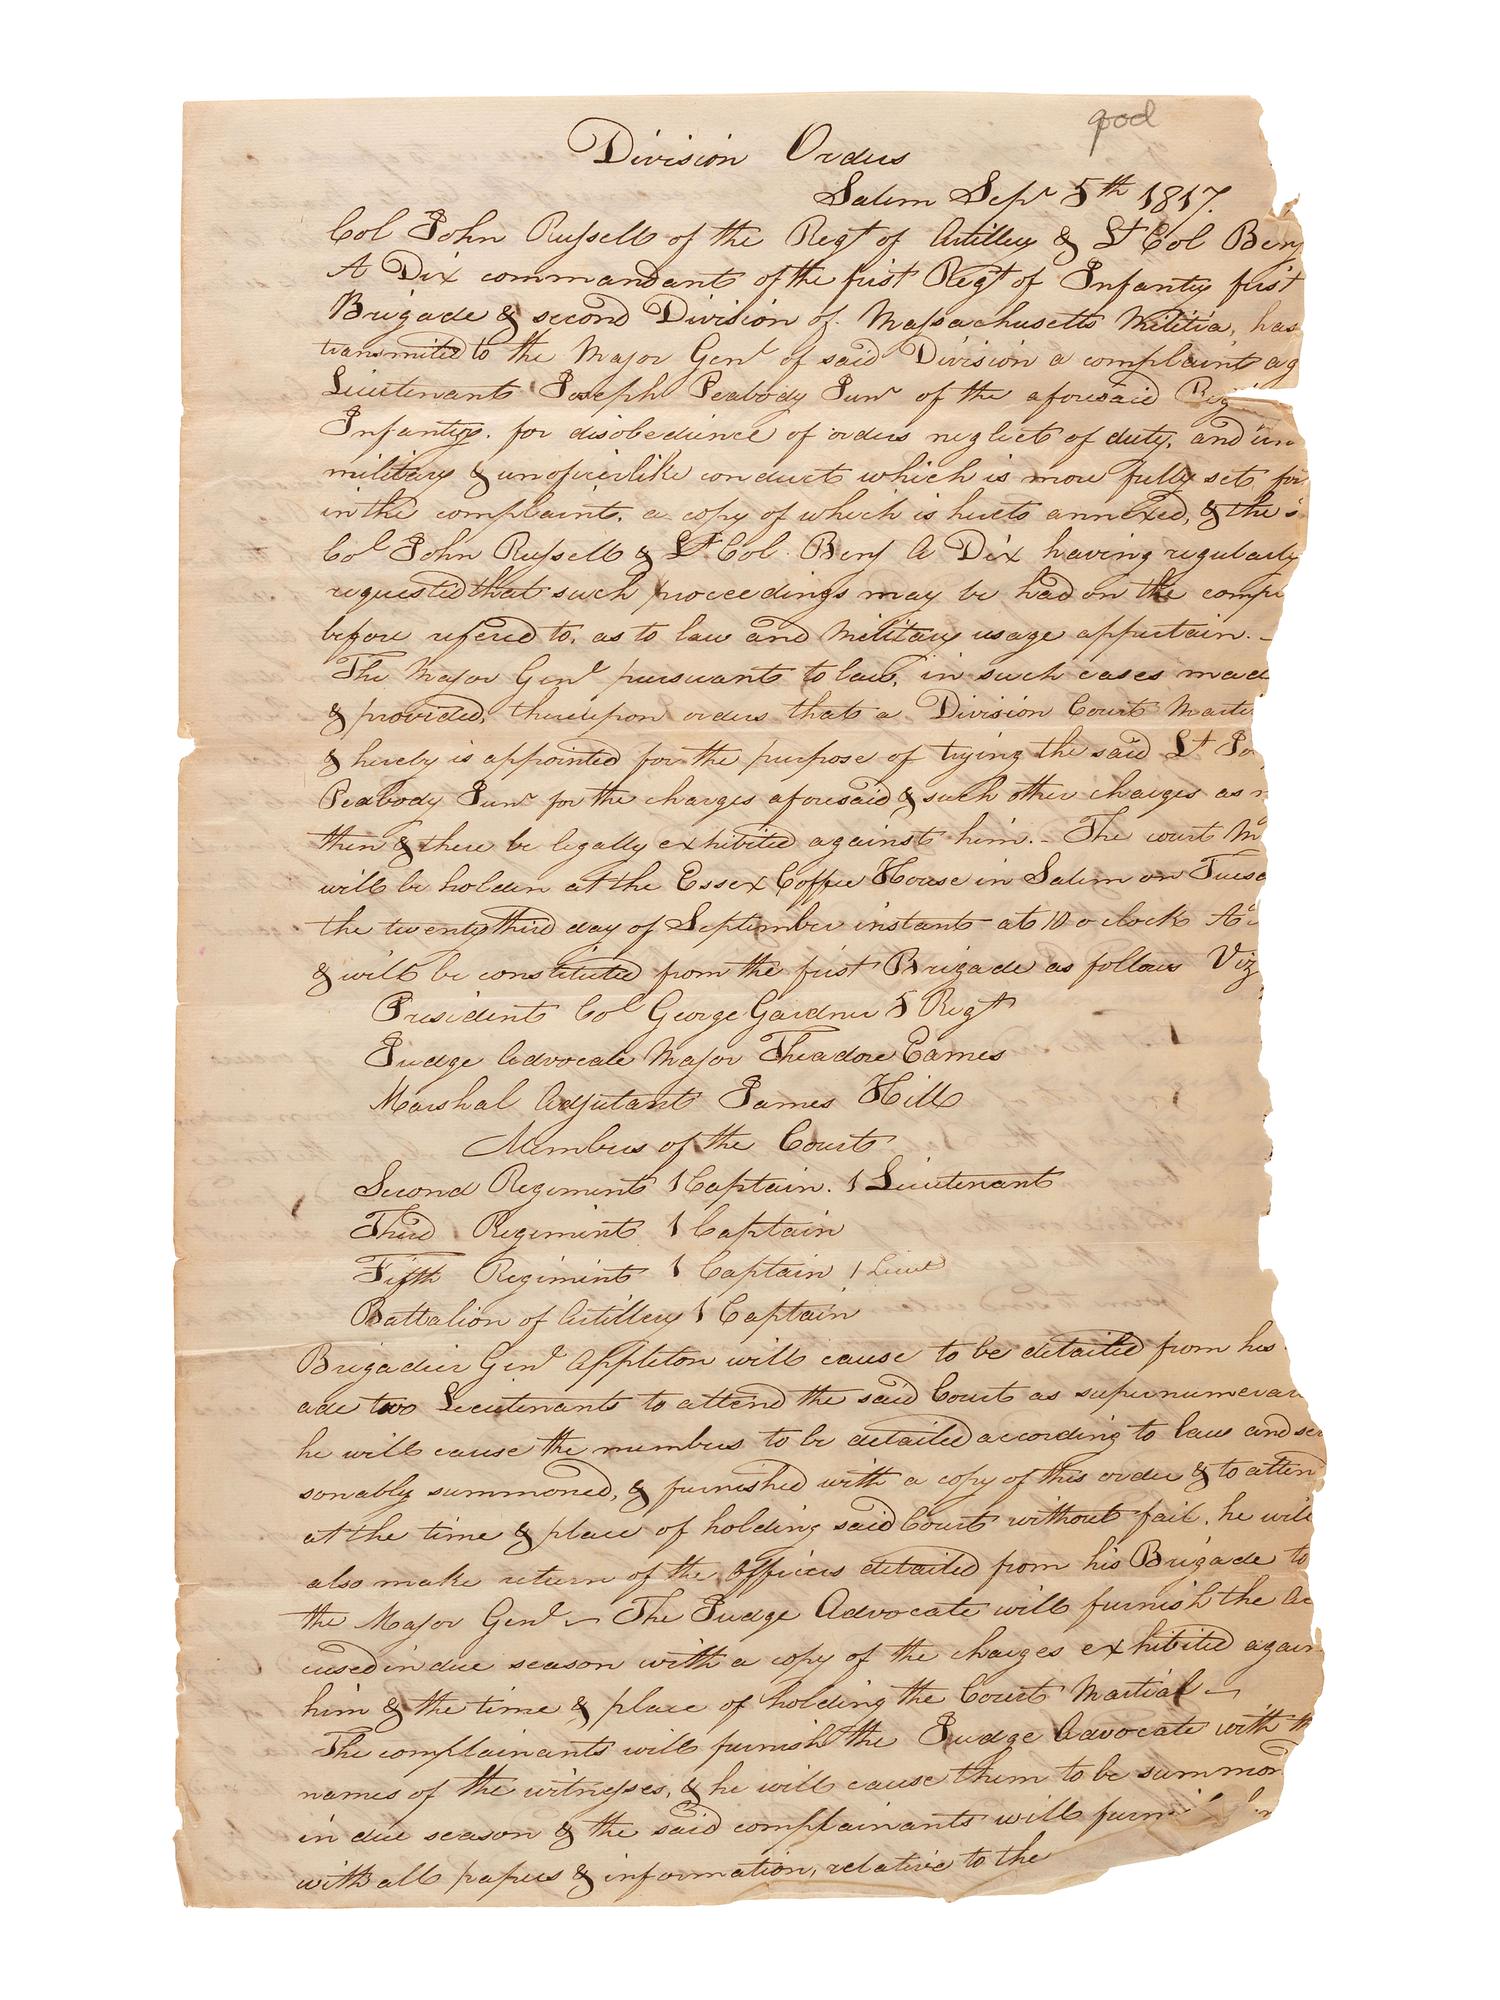 good
Division Orders
Salem Sepr 5th 1817.
Col John Russell of the Regt of Artillery & Lt Col Benj
A Dix commandant of the first Regt of Infantry first
Brigade & second Division of Massachusetts Militia, has
transmited to the Major Genl of said Division a complaint ag
Lieutenant Joseph Peabody Junr of the aforesaid Reg
Infantry. for disobedience of orders neglect of duty, and un
military & unoficerlike conduct which is more fully set for
in the complaint, a copy of which is hereto annexed, & the s
Col John Russell & Lt Col Benj A Dix having regularly
requested that such proceedings may be had on the comp
before refered to, as to law and Military usage appertain. -
The Major Genl pursuant to law, in such cases mad
& provided, thereupon orders that a Division Court Marti
& hereby is appointed for the purpose of trying the said Lt Jo
Peabody Junr for the charges aforesaid & such other charges as m
then & there be legally exhibited against him. - The court M
will be holden at the Essex Coffee House in Salem on Tuesd
the twenty third day of September instant at 10 o clock
& will be constituted from the first Brigade as follows Viz
President Col George Gardner 5 Regt
Judge Advocate Major Theadore Eames
Marshal Adjutant James Hill
Members of the Court
Second Regiment 1 Captain. 1 Lieutenant
Third Regiment 1 Captain
Fifth Regiment 1 Captain 1 Lieut
Battalion of Artillery 1 Captain
Brigadier Genl Appleton will cause to be detailed from his
ade two Lieutenants to attend the said Court as supernumerar
he will cause the members to be detailed according to law and sea
sonably summoned, & furnished with a copy of this order & to atten
at the time & place of holding said Court without fail. he will
also make return of the Officers detailed from his Brigade to
the Major Genl - The Judge Advocate will furnish the Ac
cused in due season with a copy of the charges exhibited again
him & the time & place of holding the Court Martial -
The complainants will furnish the Judge Advocate with th
names of the witnesses, & he will cause them to be summon
in due season & the said complainants will furni
with all papers & information, relative to the